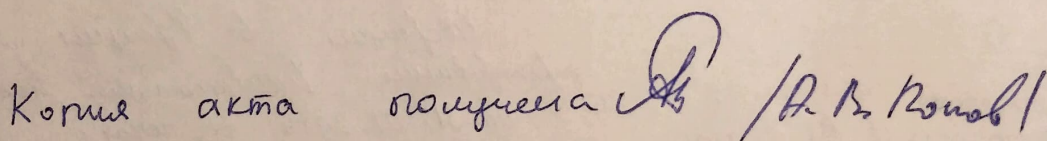 Копия акта получена /А. В. Попов/